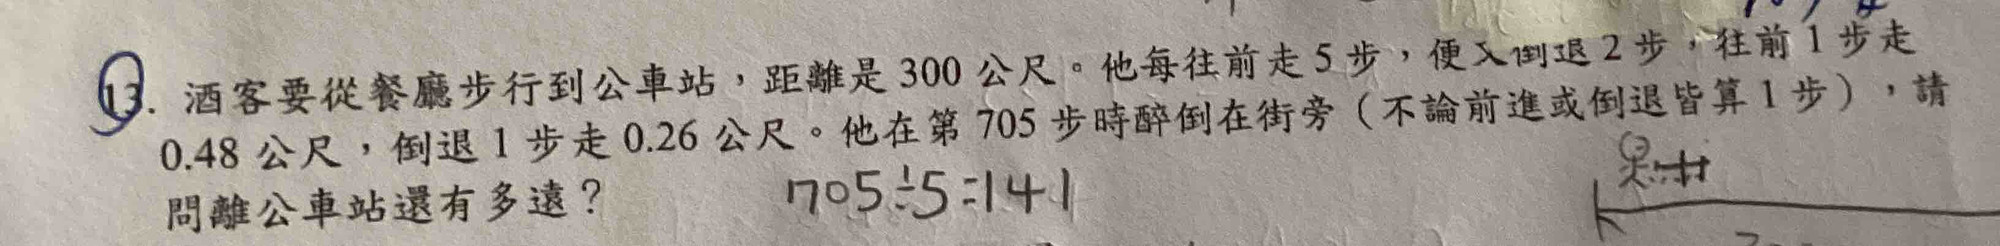 13. 酒客要從餐廳步行到公車站,距離是 300 公尺。他每往前走 5 步,便又倒退 2 步,往前 1 步走
0.48 公尺,倒退 1 步走 0.26 公尺。他在第 705 步時醉倒在街旁(不論前進或倒退皆算 1 步),請
問離公車站還有多遠?
705÷5=141